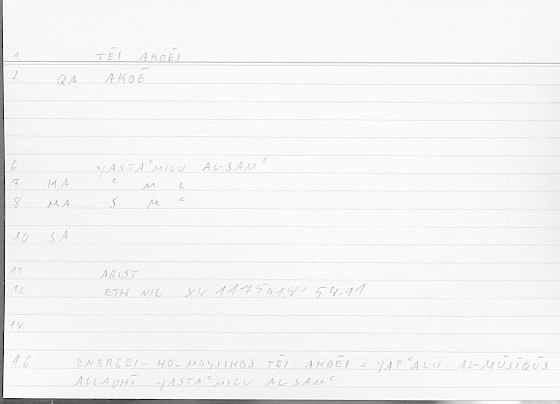 1 TĒI AKOĒI
2 QA AKOĒ
6 YASTAᶜMILU AL-SAMᶜ
7 MA ᶜ M L
8 MA S M ᶜ
10 SA
11 ARIST
12 ETH NIC X4 1175a14, 54.11
14
16 ENERGEI-- HO-MOYSIKOS TĒI AKOĒI = YAFᶜALU-- AL-MŪSĪQŪS
ALLADHĪ YASTAᶜMILU AL-SAMᶜ